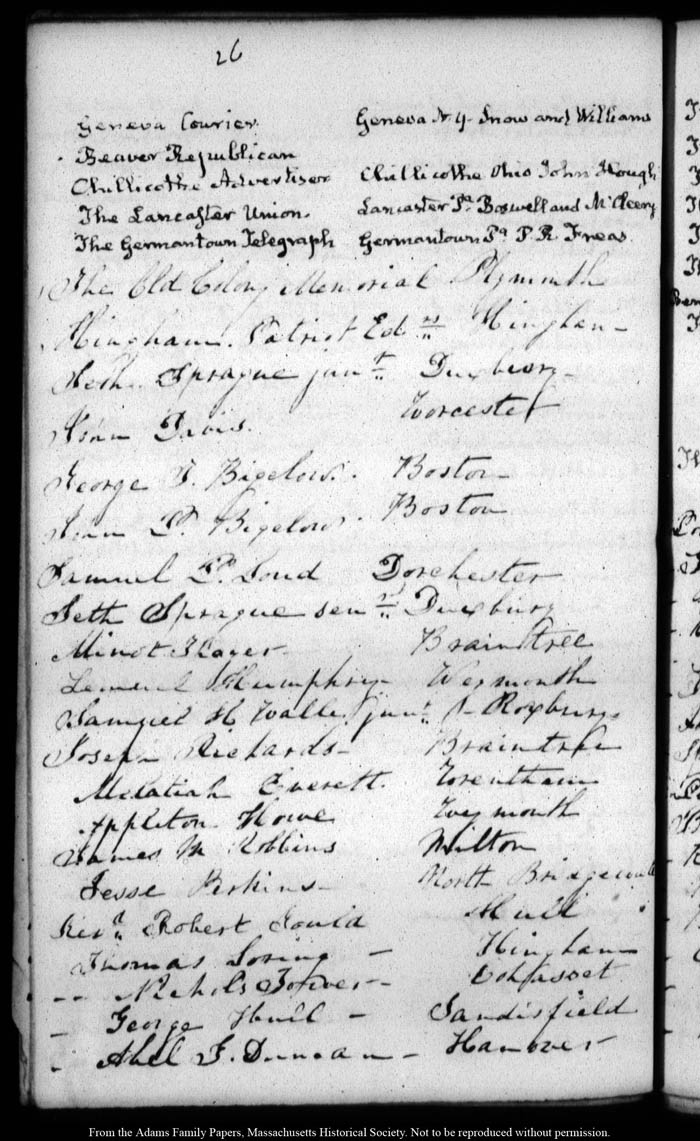 26
Geneva Courier. Geneva N Y. Snow and Williams
Beaver Republican
Chillicothe Advertiser Chillicothe Ohio John Hough
The Lancaster Union. Lancaster Pa. Boswell and McCleery
The Germantown Telegraph Germantown Pa P. R. Freas.
The Old Colony Memorial Plymouth
Hingham Patriot Edrs Hingham
Seth Sprague junr Duxbury
Isaac Davis. Worcester
George T. Bigelow. Boston
P. Bigelow. Boston
Samuel P. Loud Dorchester
Seth Sprague senr Duxbury
Minot Thayer Braintree
Lemuel Humphrey Weymouth
Samuel H Walley junr Roxbury
Joseph Richards Braintree
Melatiah Everett Wrentham
Appleton Howe Weymouth
James M Robbins Milton
Jesse Perkins North Bridgewater
Revd Robert Gould Hull
Thomas Loring Hingham
Nichols Tower Cohasset
George Hull Sandisfield
Abel G. Duncan Hanover
From the Adams Family Papers, Massachusetts Historical Society. Not to be reproduced without permission.